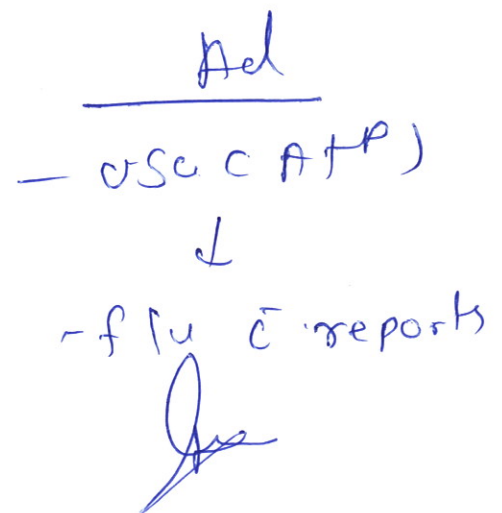 Ad
- USG (A+P)
↓
- f/u c̄ reports